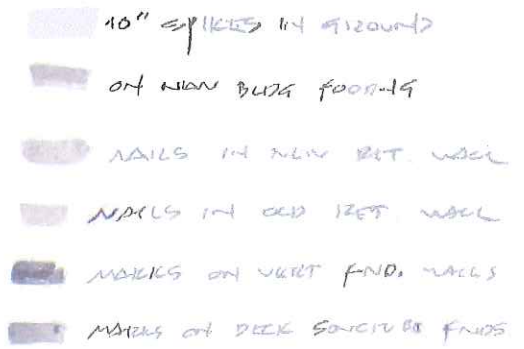 10" SPIKES IN GROUND
ON NEW BLDG FOOTING
NAILS IN NEW RET. WALL
NAILS IN OLD RET. WALL
MARKS ON VERT FND. WALLS
MARKS ON DECK FNDS